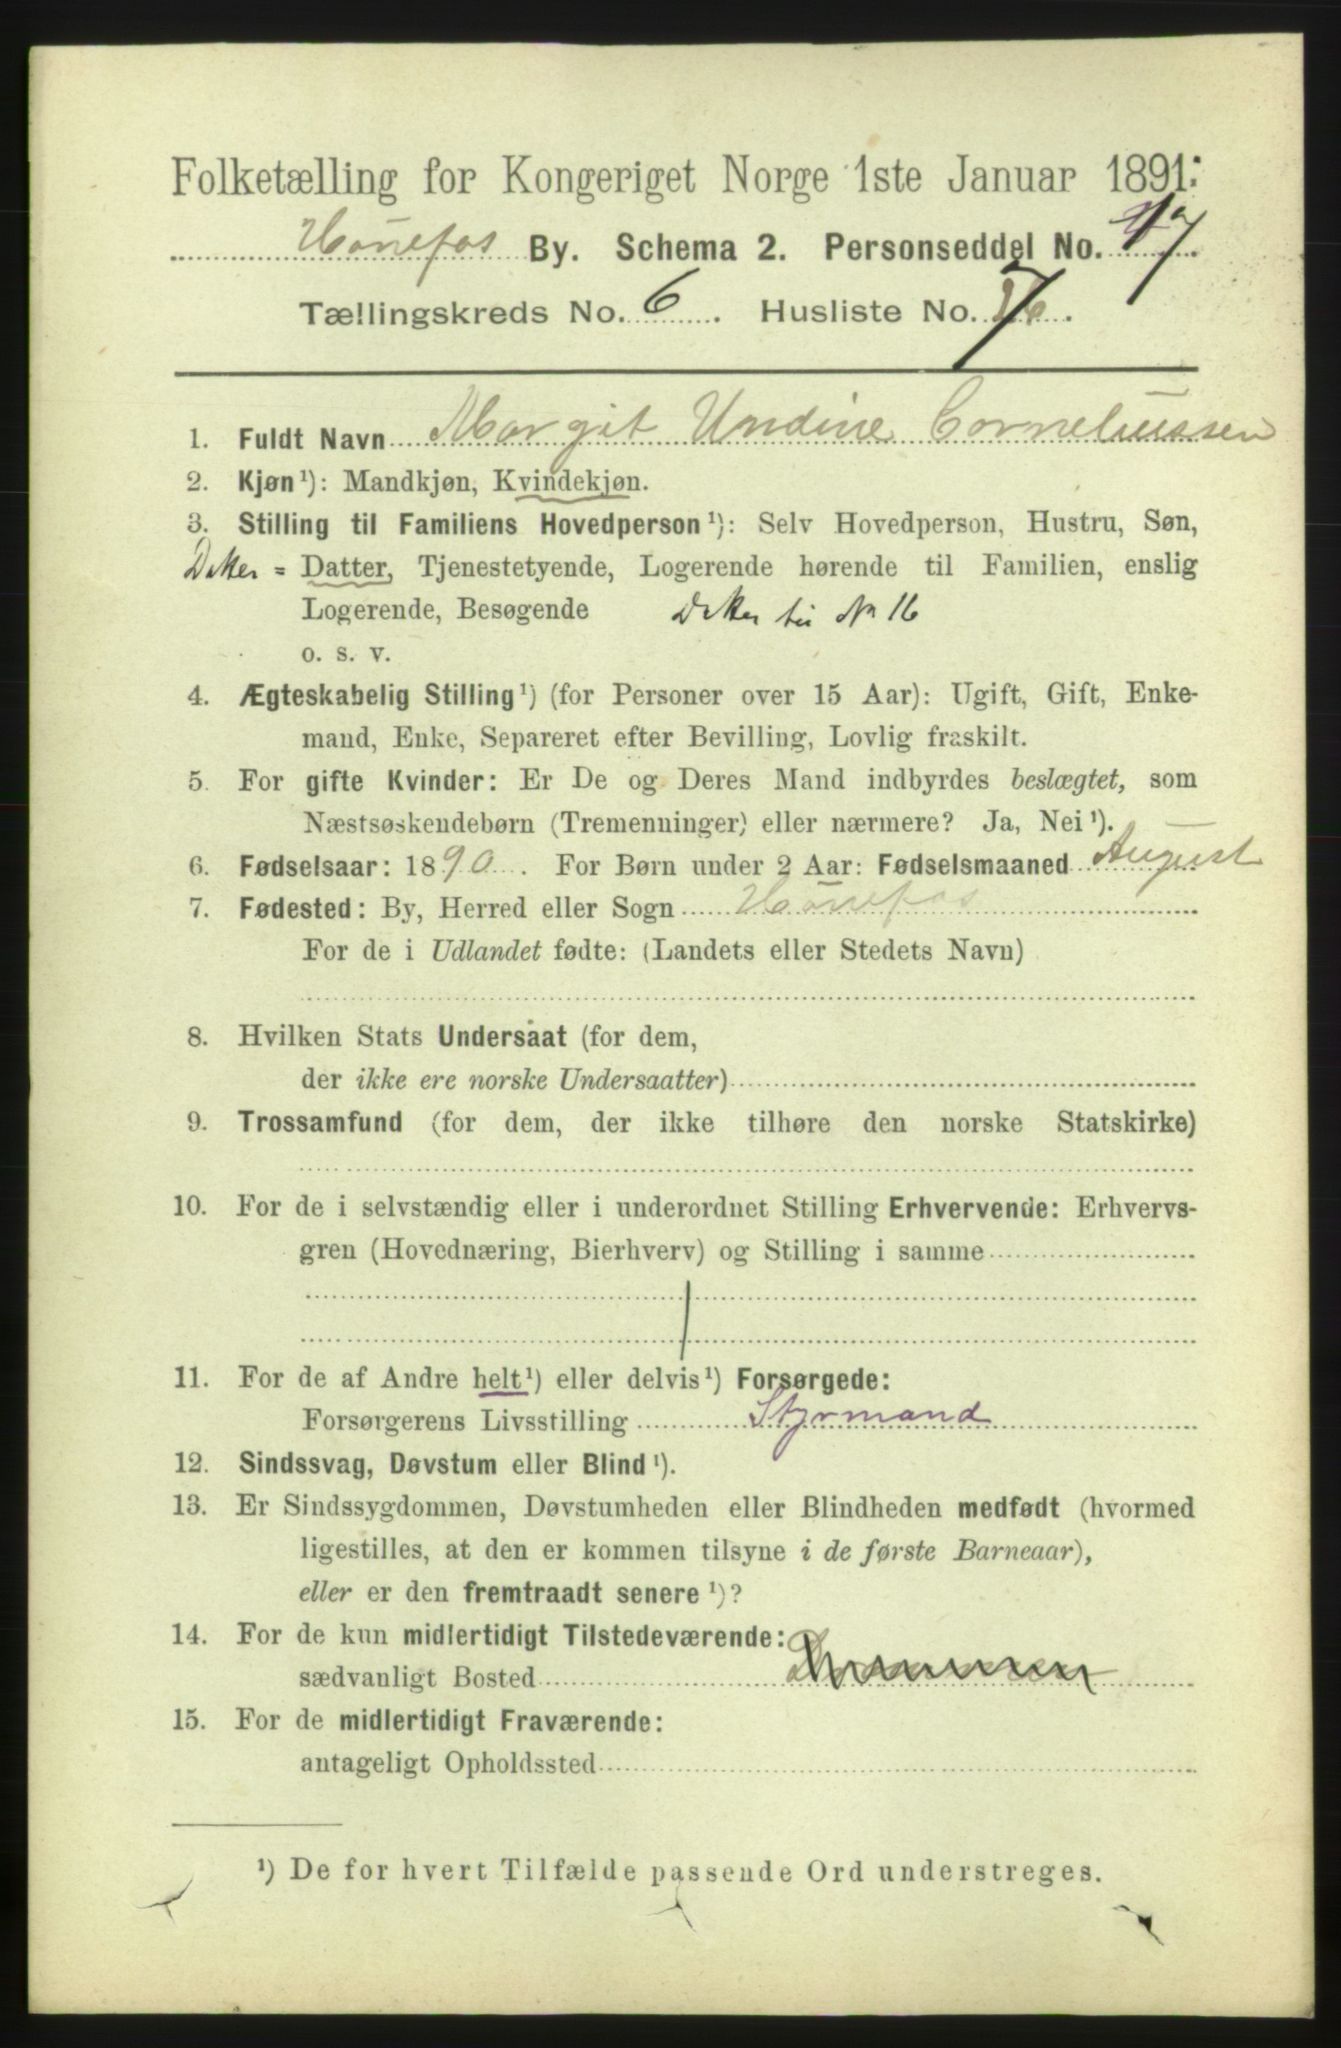 Folketælling for Kongeriget Norge 1ste Januar 1891.
Hönefos By. Schema 2. Personseddel No. 17
Tællingskreds No. 6. Husliste No. 7.
1. Fuldt Navn Margit Undine Corneliussen
2. Kjøn¹): Mandkjøn, Kvindekjøn.
3. Stilling til Familiens Hovedperson¹): Selv Hovedperson, Hustru, Søn,
Datter = Datter, Tjenestetyende, Logerende hørende til Familien, enslig
Logerende, Besøgende Datter til No 16
o. s. v.
4. Ægteskabelig Stilling¹) (for Personer over 15 Aar): Ugift, Gift, Enke-
mand, Enke, Separeret efter Bevilling, Lovlig fraskilt.
5. For gifte Kvinder: Er De og Deres Mand indbyrdes beslægtet, som
Næstsøskendebørn (Tremenninger) eller nærmere? Ja, Nei¹).
6. Fødselsaar: 1890. For Børn under 2 Aar: Fødselsmaaned August
7. Fødested: By, Herred eller Sogn Hönefos
For de i Udlandet fødte: (Landets eller Stedets Navn)
8. Hvilken Stats Undersaat (for dem,
der ikke ere norske Undersaatter)
9. Trossamfund (for dem, der ikke tilhøre den norske Statskirke)
10. For de i selvstændig eller i underordnet Stilling Erhvervende: Erhvervs-
gren (Hovednæring, Bierhverv) og Stilling i samme
11. For de af Andre helt¹) eller delvis¹) Forsørgede:
Forsørgerens Livsstilling Styrmand
12. Sindssvag, Døvstum eller Blind¹).
13. Er Sindssygdommen, Døvstumheden eller Blindheden medfødt (hvormed
ligestilles, at den er kommen tilsyne i de første Barneaar),
eller er den fremtraadt senere¹)?
14. For de kun midlertidigt Tilstedeværende:
sædvanligt Bosted
15. For de midlertidigt Fraværende:
antageligt Opholdssted
¹) De for hvert Tilfælde passende Ord understreges.